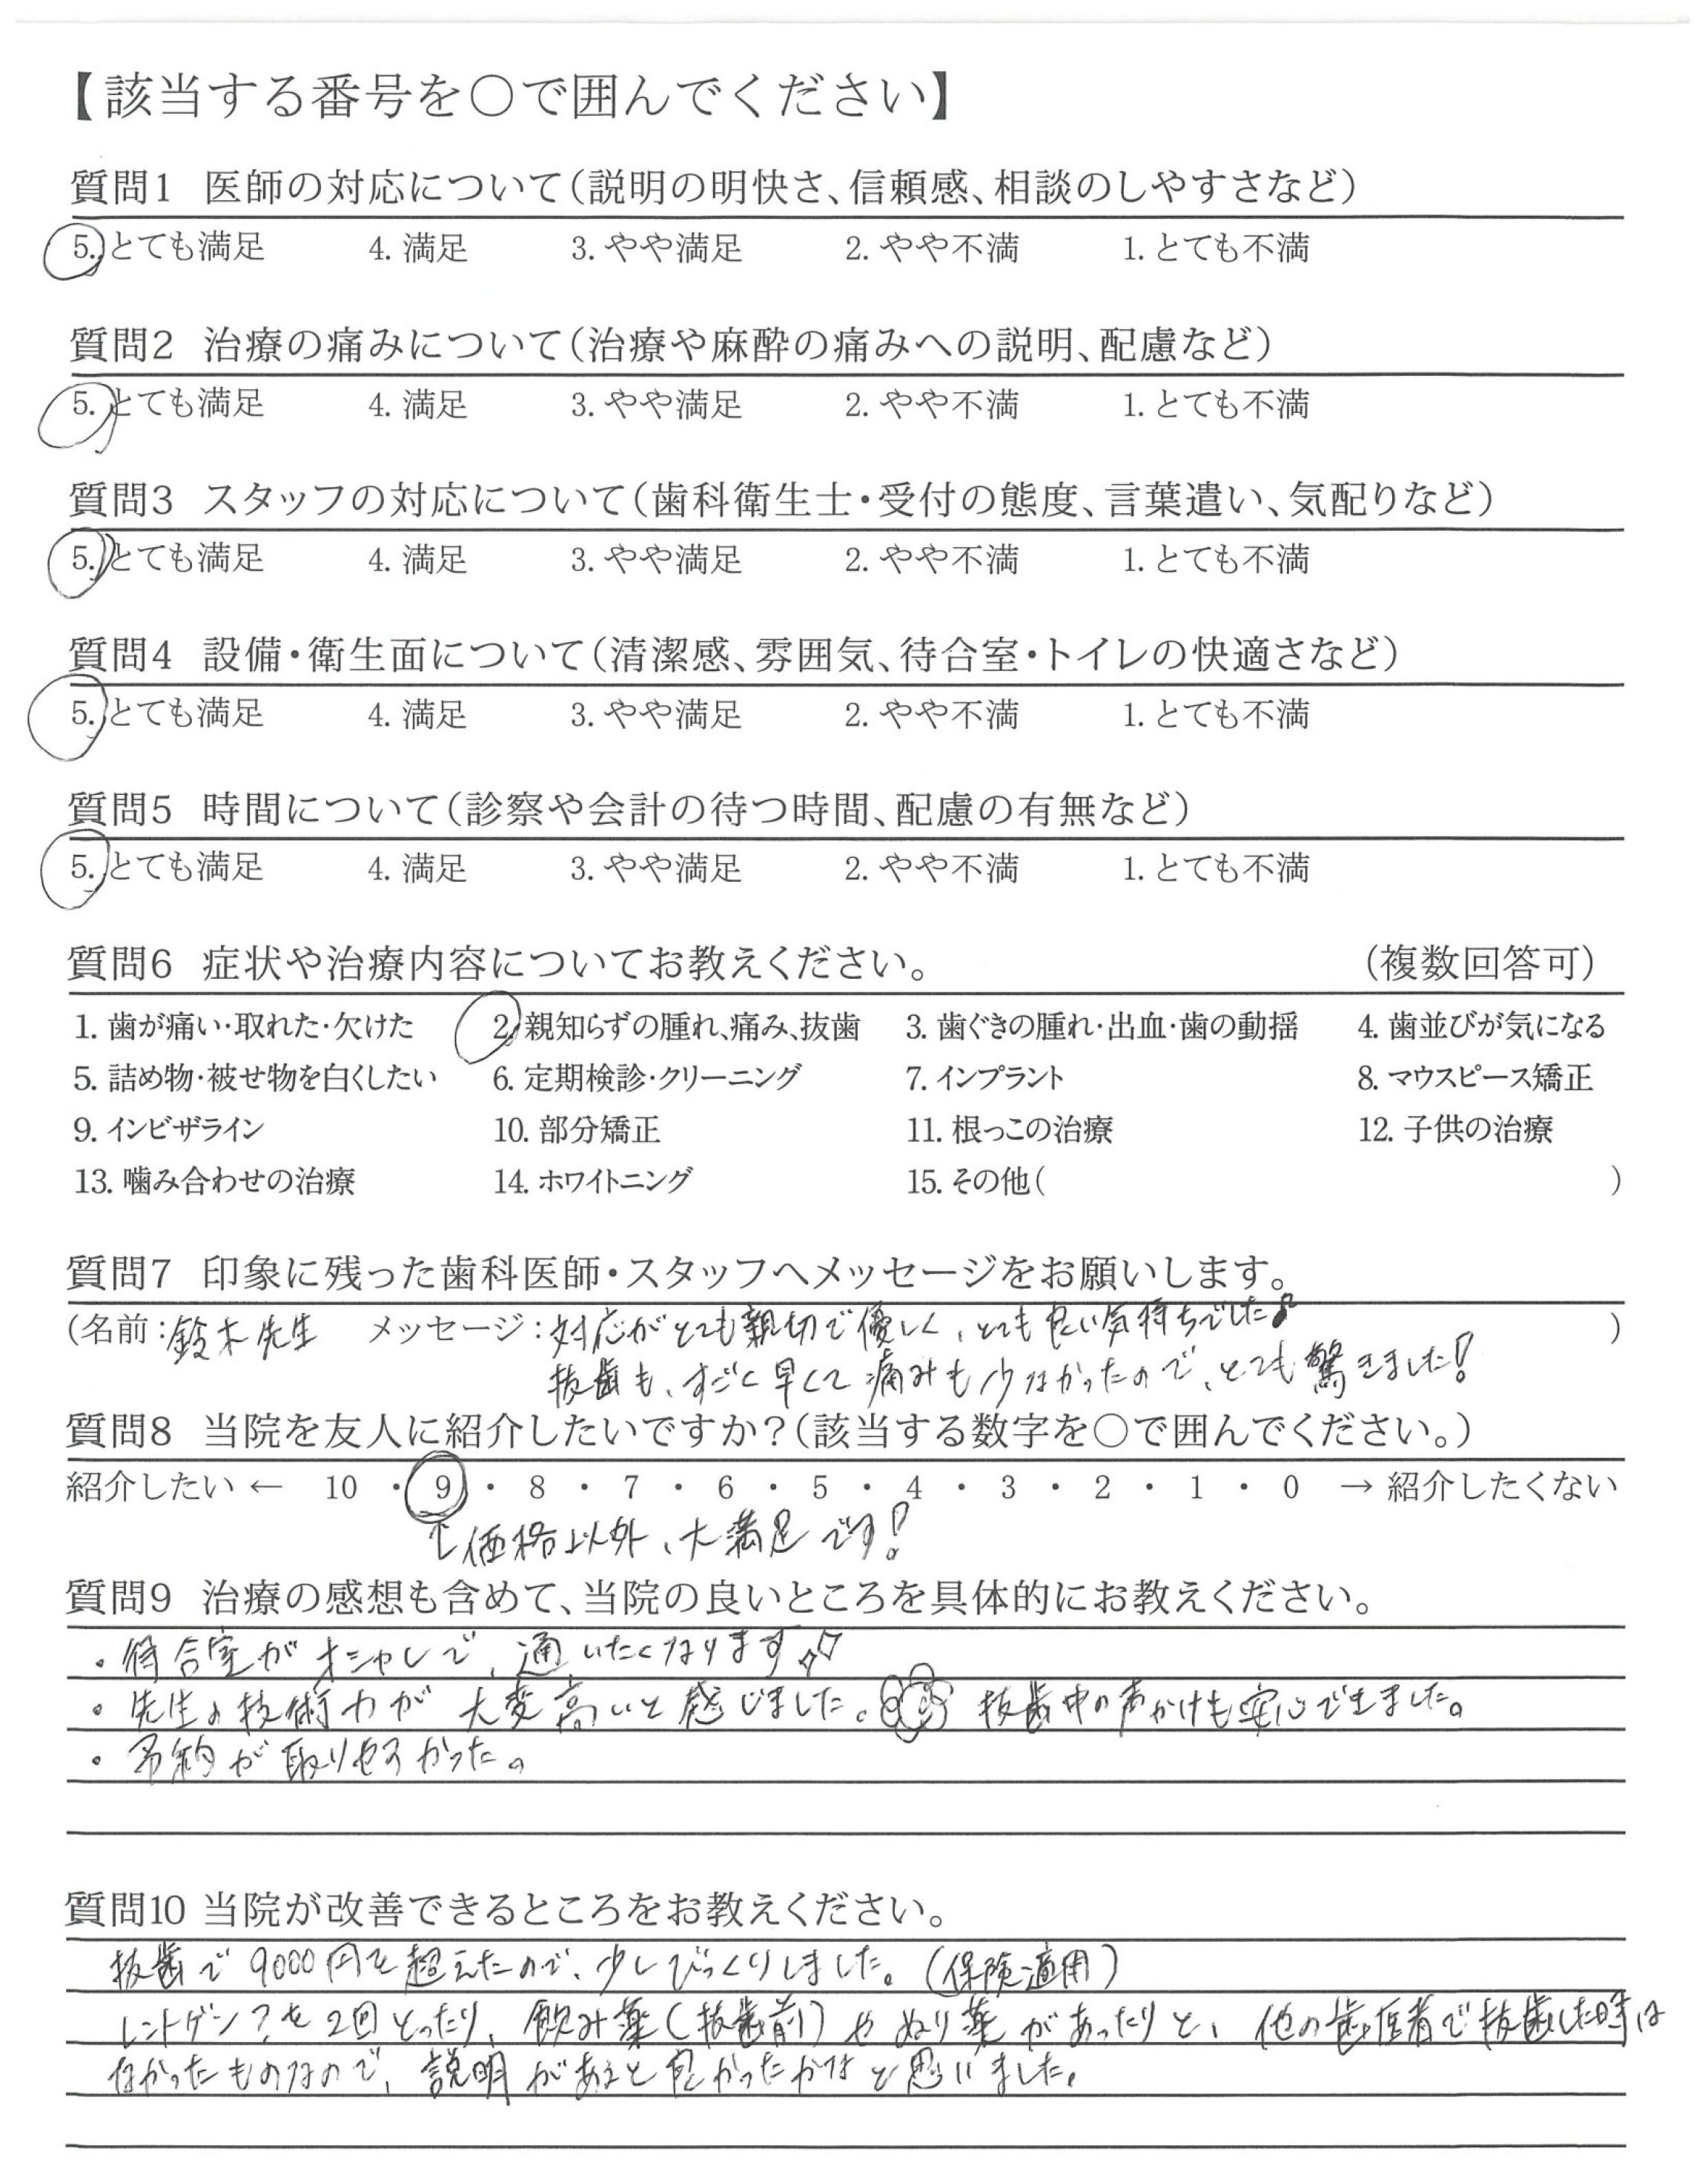 【該当する番号を○で囲んでください】
質問1 医師の対応について(説明の明快さ、信頼感、相談のしやすさなど)
5. とても満足 4. 満足 3. やや満足 2. やや不満 1. とても不満
質問2 治療の痛みについて(治療や麻酔の痛みへの説明、配慮など)
5. とても満足 4. 満足 3. やや満足 2. やや不満 1. とても不満
質問3 スタッフの対応について(歯科衛生士・受付の態度、言葉遣い、気配りなど)
5. とても満足 4. 満足 3. やや満足 2. やや不満 1. とても不満
質問4 設備・衛生面について(清潔感、雰囲気、待合室・トイレの快適さなど)
5. とても満足 4. 満足 3. やや満足 2. やや不満 1. とても不満
質問5 時間について(診察や会計の待つ時間、配慮の有無など)
5. とても満足 4. 満足 3. やや満足 2. やや不満 1. とても不満
質問6 症状や治療内容についてお教えください。 (複数回答可)
1. 歯が痛い・取れた・欠けた 2. 親知らずの腫れ、痛み、抜歯 3. 歯ぐきの腫れ・出血・歯の動揺 4. 歯並びが気になる
5. 詰め物・被せ物を白くしたい 6. 定期検診・クリーニング 7. インプラント 8. マウスピース矯正
9. インビザライン 10. 部分矯正 11. 根っこの治療 12. 子供の治療
13. 噛み合わせの治療 14. ホワイトニング 15. その他( )
質問7 印象に残った歯科医師・スタッフへメッセージをお願いします。
(名前:鈴木先生 メッセージ:対応がとても親切で優しく、とても良い気持ちでした♪ )
抜歯も、すごく早くて痛みも少なかったので、とても驚きました!
質問8 当院を友人に紹介したいですか?(該当する数字を○で囲んでください。)
紹介したい ← 10 ・ 9 ・ 8 ・ 7 ・ 6 ・ 5 ・ 4 ・ 3 ・ 2 ・ 1 ・ 0 → 紹介したくない
↑価格以外、大満足です!
質問9 治療の感想も含めて、当院の良いところを具体的にお教えください。
・待合室がオシャレで、通いたくなります
・先生の技術力が大変高いと感じました。 抜歯中の声かけも安心できました。
・予約が取りやすかった。
質問10 当院が改善できるところをお教えください。
抜歯で9000円を超えたので、少しびっくりしました。(保険適用)
レントゲン?を2回とったり、飲み薬(抜歯前)やぬり薬があったりと、他の歯医者で抜歯した時は
なかったものなので、説明があると良かったかなと思いました。